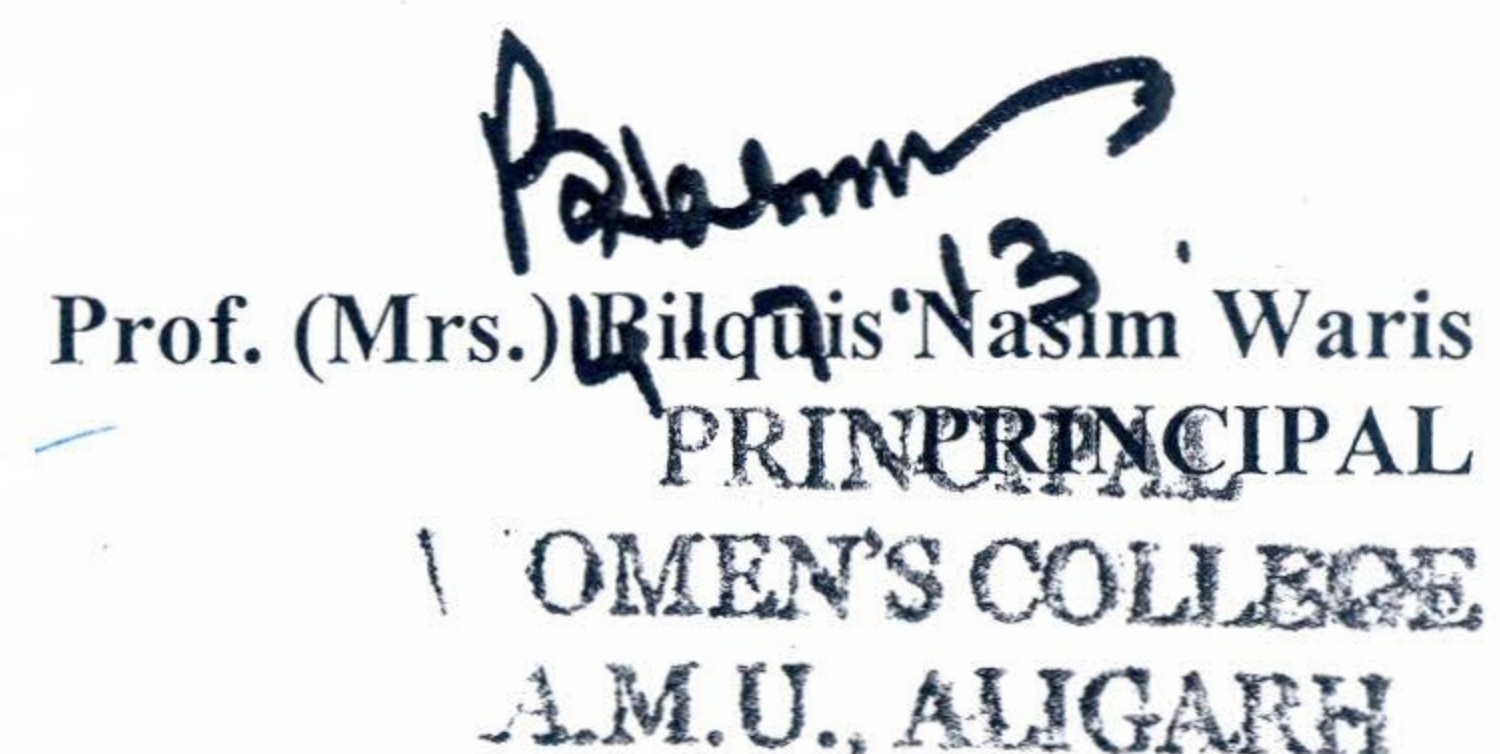 4.7.13.
Prof. (Mrs.) Bilquis Nasim Waris
PRINCIPAL
PRINCIPAL
OMEN'S COLLEGE
A.M.U., ALIGARH